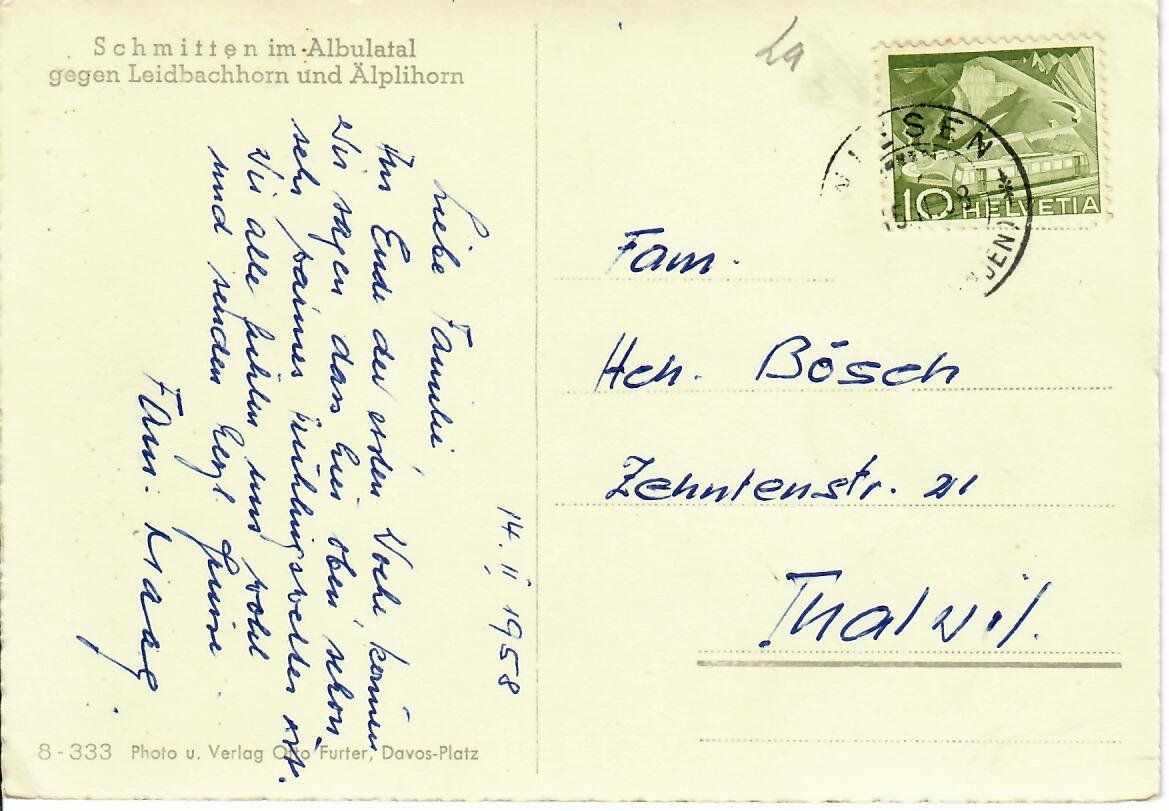 Schmitten im Albulatal
gegen Leidbachhorn und Älplihorn
14. II 1958
Liebe Familie
Am Ende der ersten Woche können
Wir sagen dass hier oben schon
sehr warmes Frühlingswetter ist.
Wir alle fühlen uns wohl
und senden herzl. Grüsse
Fam. Haag.
8-333 Photo u. Verlag Otto Furter, Davos-Platz
La
10 HELVETIA
Fam.
Hch. Bösch
Zehntenstr. 21
Thalwil.